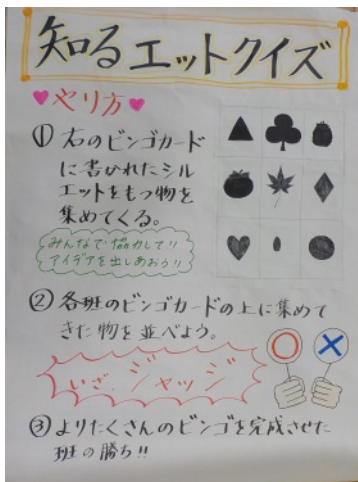 知るエットクイズ
やり方
① 右のビンゴカード
に書かれたシル
エットをもつ物を
集めてくる。
みんなで協力して!!
アイデアを出しあおう!!
② 各班のビンゴカードの上に集めて
きた物を並べよう。
いざ、ジャッジ
③ よりたくさんのビンゴを完成させた
班の勝ち!!